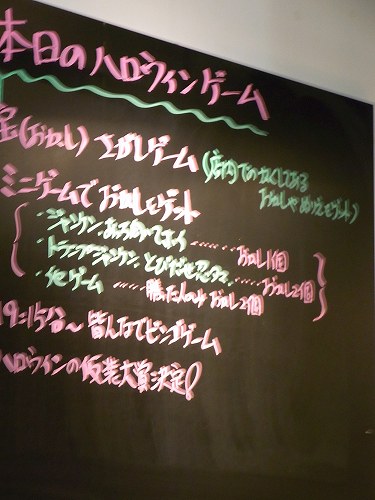 本日のハロウィンゲーム
宝(おかし)さがしゲーム(店内でかくしてある
おかしやぬりえをゲット)
ミニゲームでお菓子をゲット
・ジャンケン、あっち向てホイ……おかし1個
・トランプジャンケン とびだせ……おかし2個
・他ゲーム……勝た人のみおかし2個
19:15分〜皆んなでビンゴゲーム
ハロウィンの仮装大賞決定!